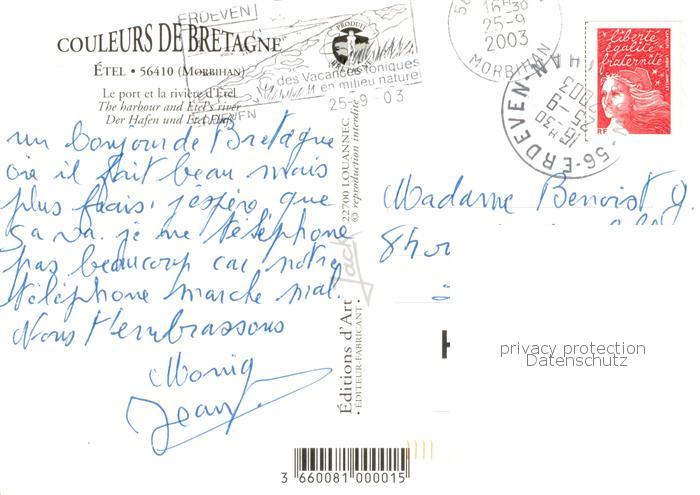 COULEURS DE BRETAGNE
ÉTEL • 56410 (MORBIHAN)
Le port et la rivière d'Étel
The harbour and Etel's river
Der Hafen und Etel Fluß
ERDEVEN
des Vacances toniques
en milieu naturel
25-9 03
PRODUIT
16H30
25-9
2003
MORBIHAN
liberté
égalité
fraternité
RF
56-ERDEVEN-MORBIHAN
16H30
25-9
2003
un bonjour de Bretagne
où il fait beau mais
plus frais. j'espère que
ça va. je ne téléphone
pas beaucoup car notre
téléphone marche mal.
Nous t'embrassons
Monig
Jean
Madame Benoist J.
22700 LOUANNEC
© reproduction interdite
Jack
Editions d'Art
• ÉDITEUR-FABRICANT •
privacy protection
Datenschutz
3 660081 000015